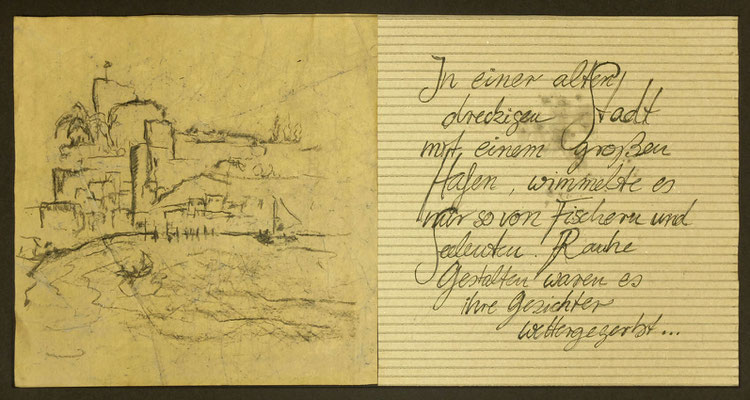 In einer alten
dreckigen Stadt
mit einem großen
Hafen, wimmelte es
nur so von Fischern und
Seeleuten. Rauhe
Gestalten waren es
ihre Gesichter
wettergegerbt...